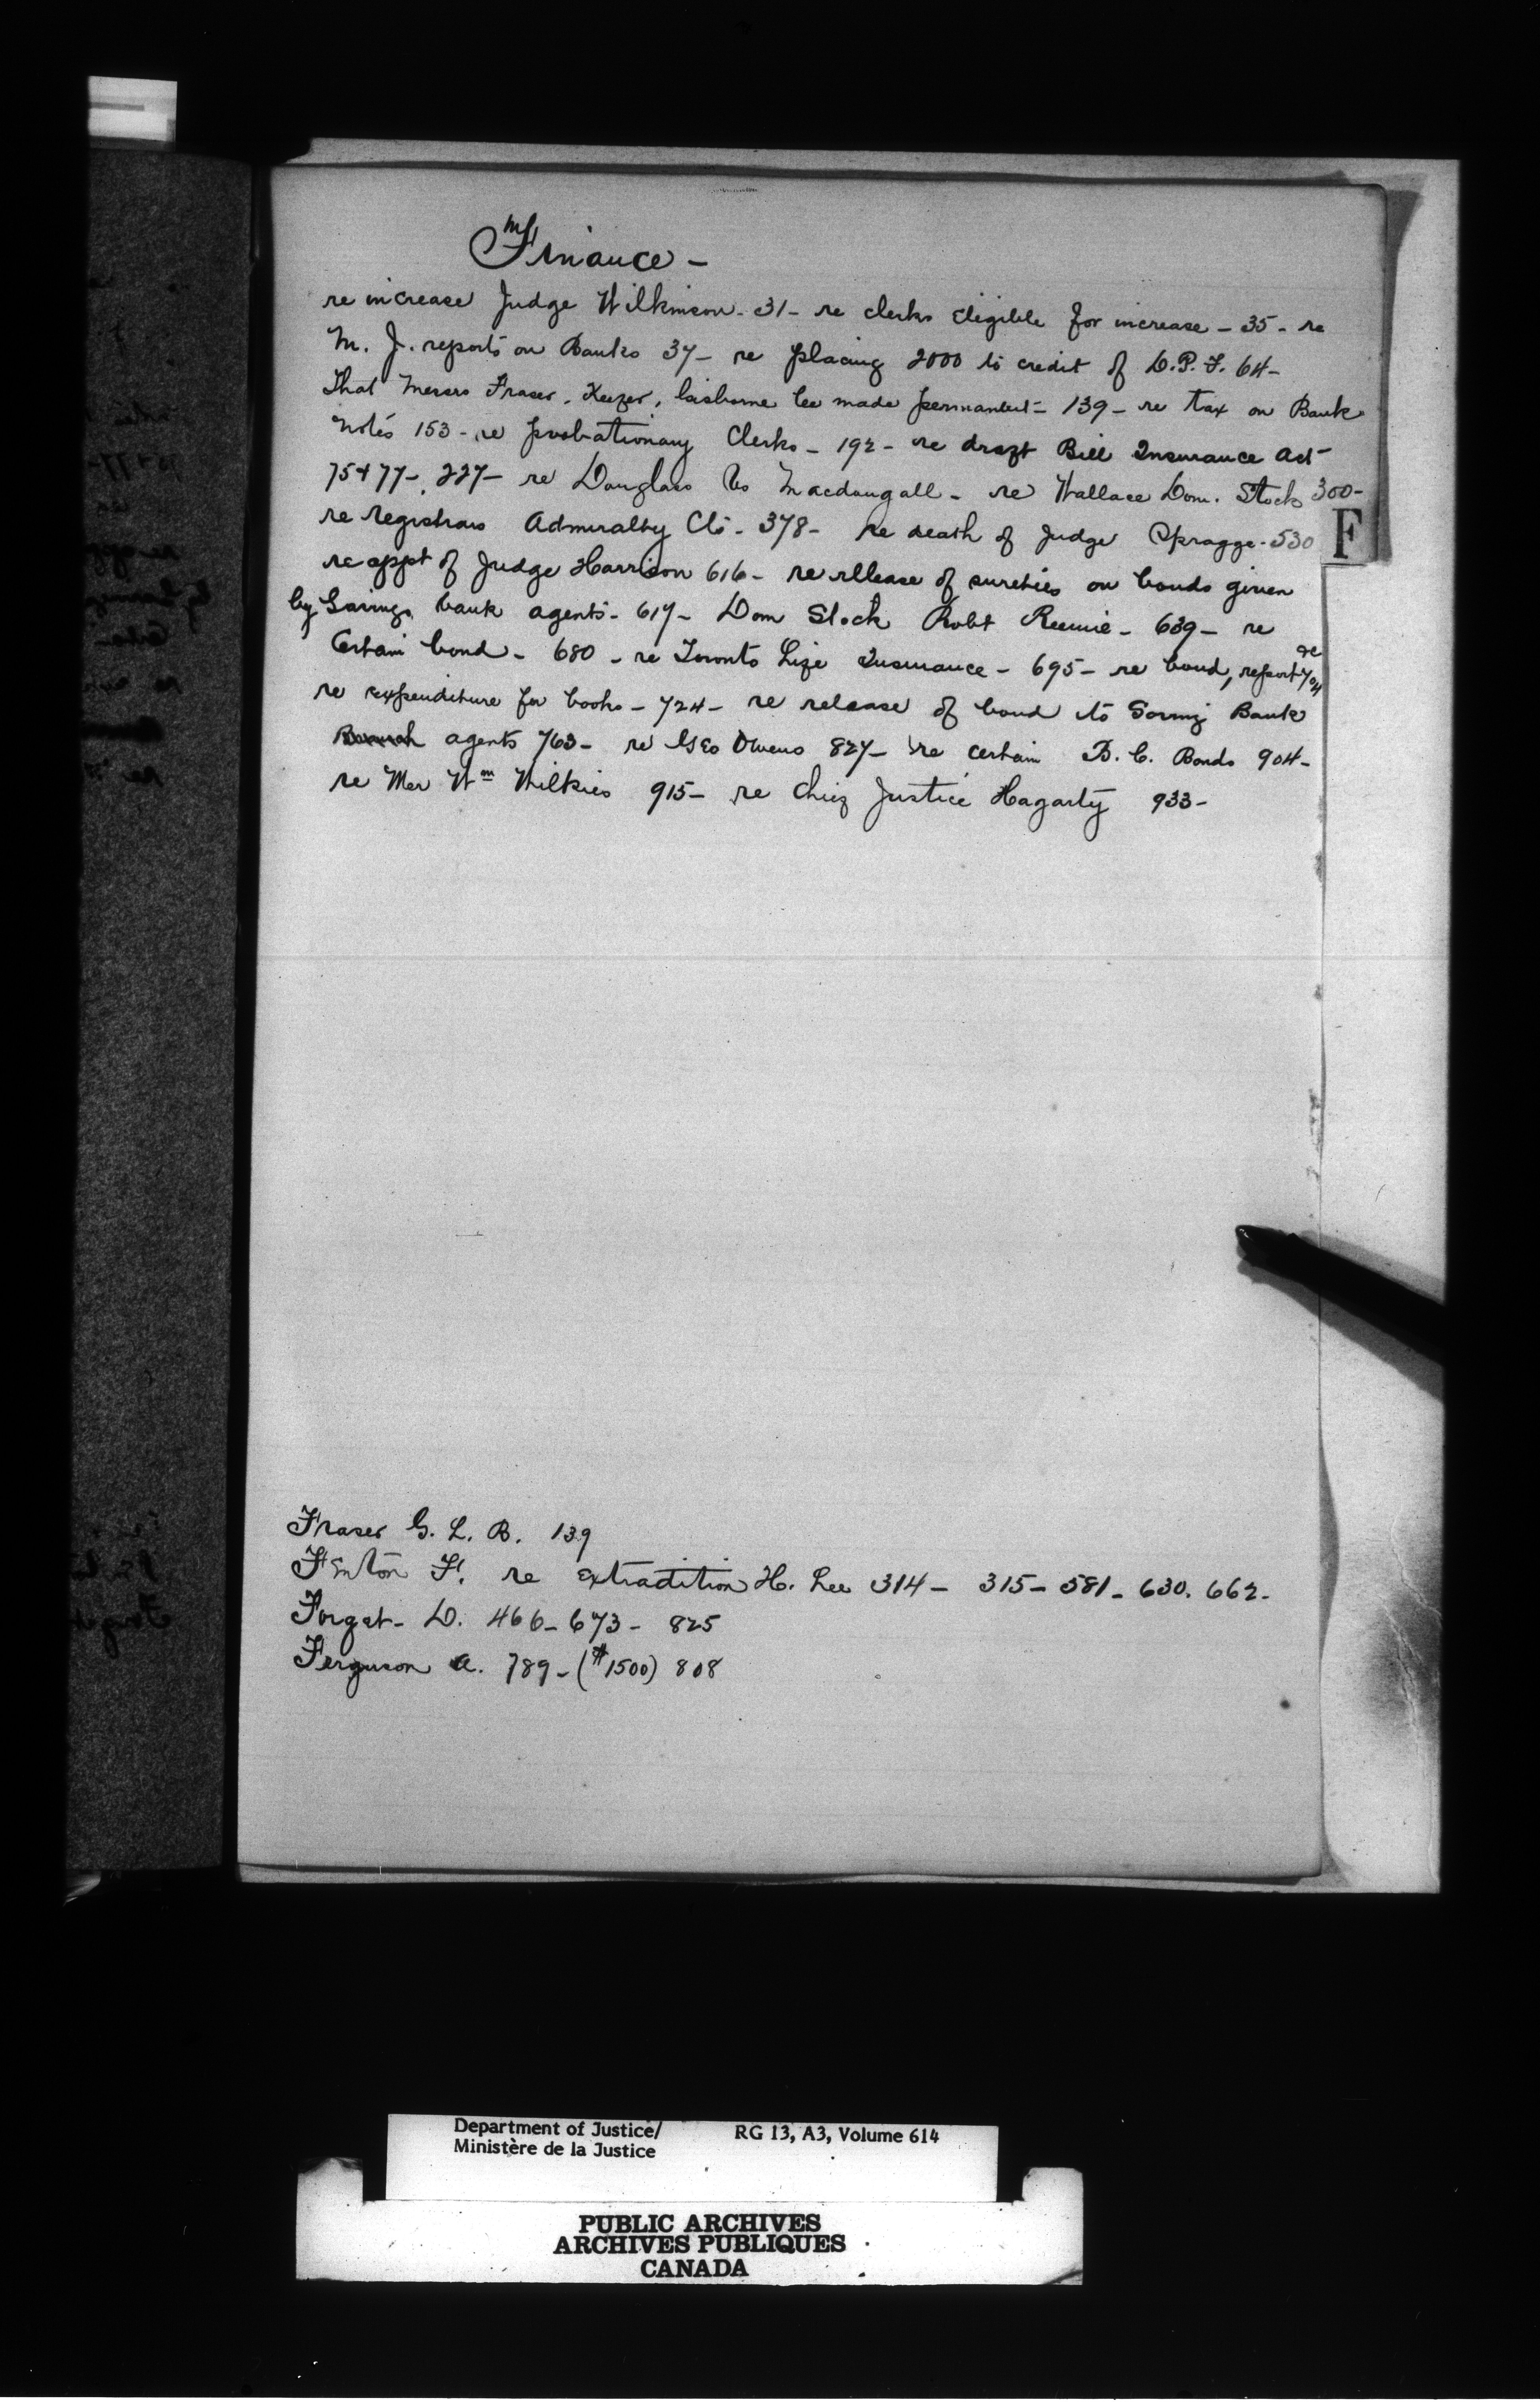 Finance -
re increase Judge Wilkinson - 31 - re clerks Eligible for increase - 35 - re
M. J. reports on Banks 37 - re placing 2000 to credit of D.P.F. 64 -
That Messrs Fraser, Keezer, be made permanent - 139 - re tax on Bank
notes 153 - re probationary Clerks - 192 - re draft Bill Insurance Act
75 + 77 - 227 - re Douglass vs Macdougall - re Wallace Dom. Stock 300 -
re registrars Admiralty Ct - 378 - re death of Judge Spragge - 530
re appt of Judge Harrison 616 - re release of sureties on bonds given
by Savings bank agents - 617 - Dom Stock Robt Rennie - 639 - re
Certain bond - 680 - re Toronto Life Insurance - 695 - re bond, report 704 re
re expenditure for books - 724 - re release of bond to Saving Bank
Branch agents 763 - re Geo Owens 827 - re certain B.C. Bonds 904 -
re Wm Wilkies 915 - re Chief Justice Hagarty 933 -
F
Fraser G. L. B. 139
Fenton F. re Extradition H. Lee 314 - 315 - 581 - 630. 662 -
Forget - D. 466 - 673 - 825
Ferguson A. 789 - ($1500) 808
Department of Justice/ RG 13, A3, Volume 614
Ministère de la Justice
PUBLIC ARCHIVES
ARCHIVES PUBLIQUES
CANADA